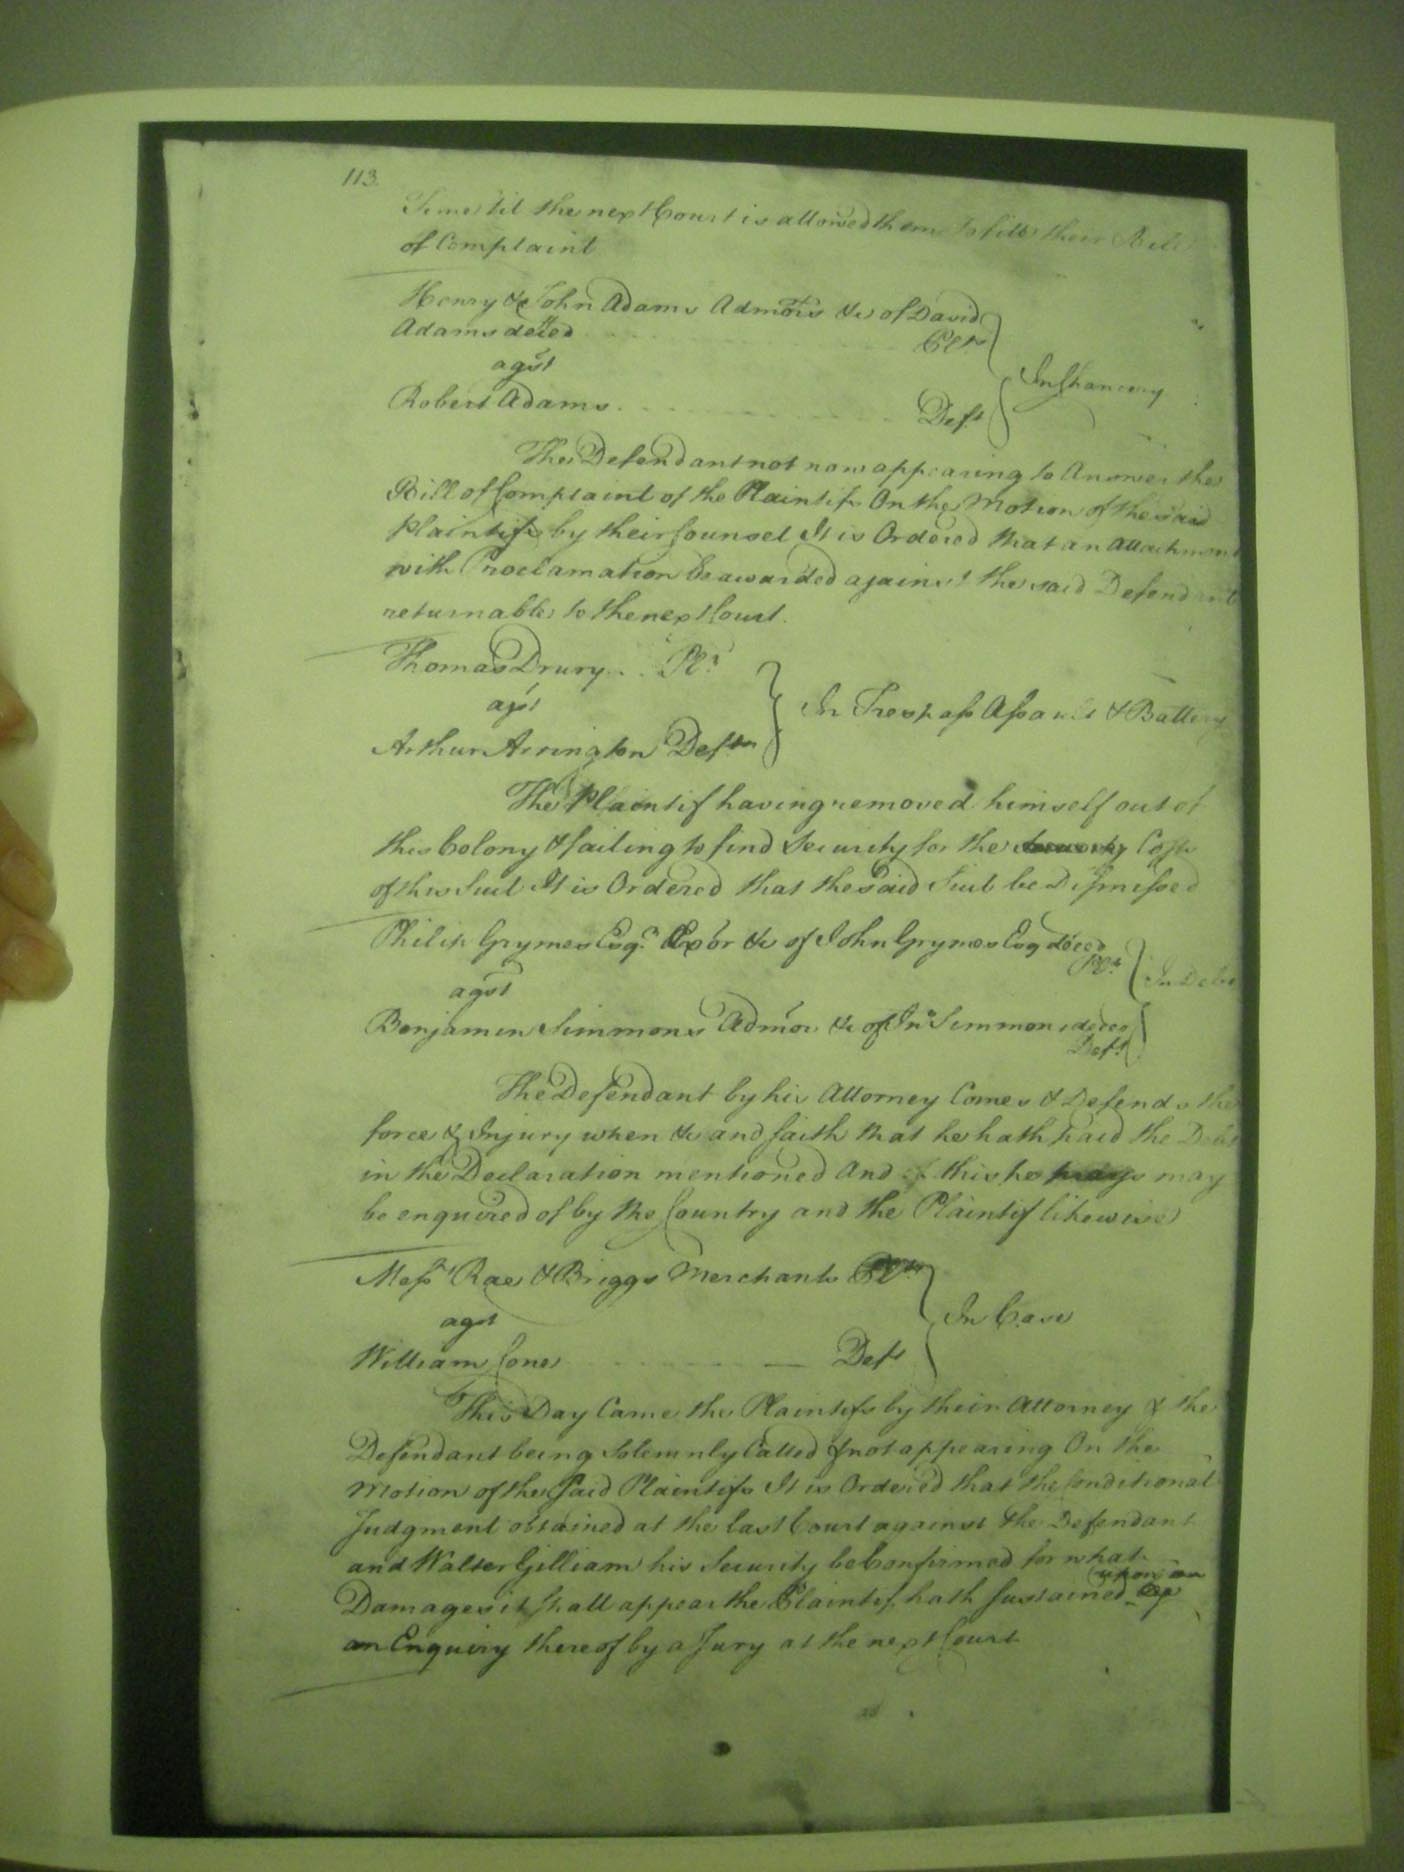 113.
Time til the next Court is allowed them to file their Bill
of Complaint
Henry & John Adams Admors &c of David
Adams deced Plts
agst
In Chancery
Robert Adams Deft
The Defendant not now appearing to Answer the
Bill of Complaint of the Plaintifs On the Motion of the said
Plaintifs by their Counsel It is Ordered that an Attachment
with Proclamation be awarded against the said Defendant
returnable to the next Court.
Thomas Drury Plt
agst
In Trespass Assault & Battery
Arthur Arrington Deft
The Plaintif having removed himself out of
this Colony & failing to find Security for the Security Costs
of this Suit It is Ordered that the said Suit be Dismissed
Philip Grymes Esqr. Exor &c of John Grymes Esq deced
Plt
In Debt
agst
Benjamin Simmons Admor &c of Jno Simmons deced
Deft
The Defendant by his Attorney Comes & Defends the
force & Injury when &c and saith that he hath paid the Debt
in the Declaration mentioned And of this he prays may
be enquired of by the Country and the Plaintif likewise
Messrs Rae & Briggs Merchants Plts
agst
In Case
William Jones Deft
This Day Came the Plaintifs by their Attorney & the
Defendant being Solemnly Called & not appearing On the
Motion of the said Plaintifs It is Ordered that the Conditional
Judgment obtained at the last Court against the Defendant
and Walter Gilliam his Security be Confirmed for what
upon an
Damages it shall appear the Plaintifs hath Sustained
an Enquiry thereof by a Jury at the next Court